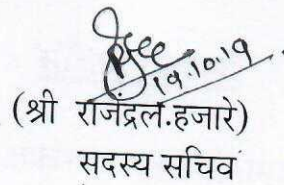 19.10.19
(श्री राजेंद्रलॅ.हजारे)
सदस्य सचिव